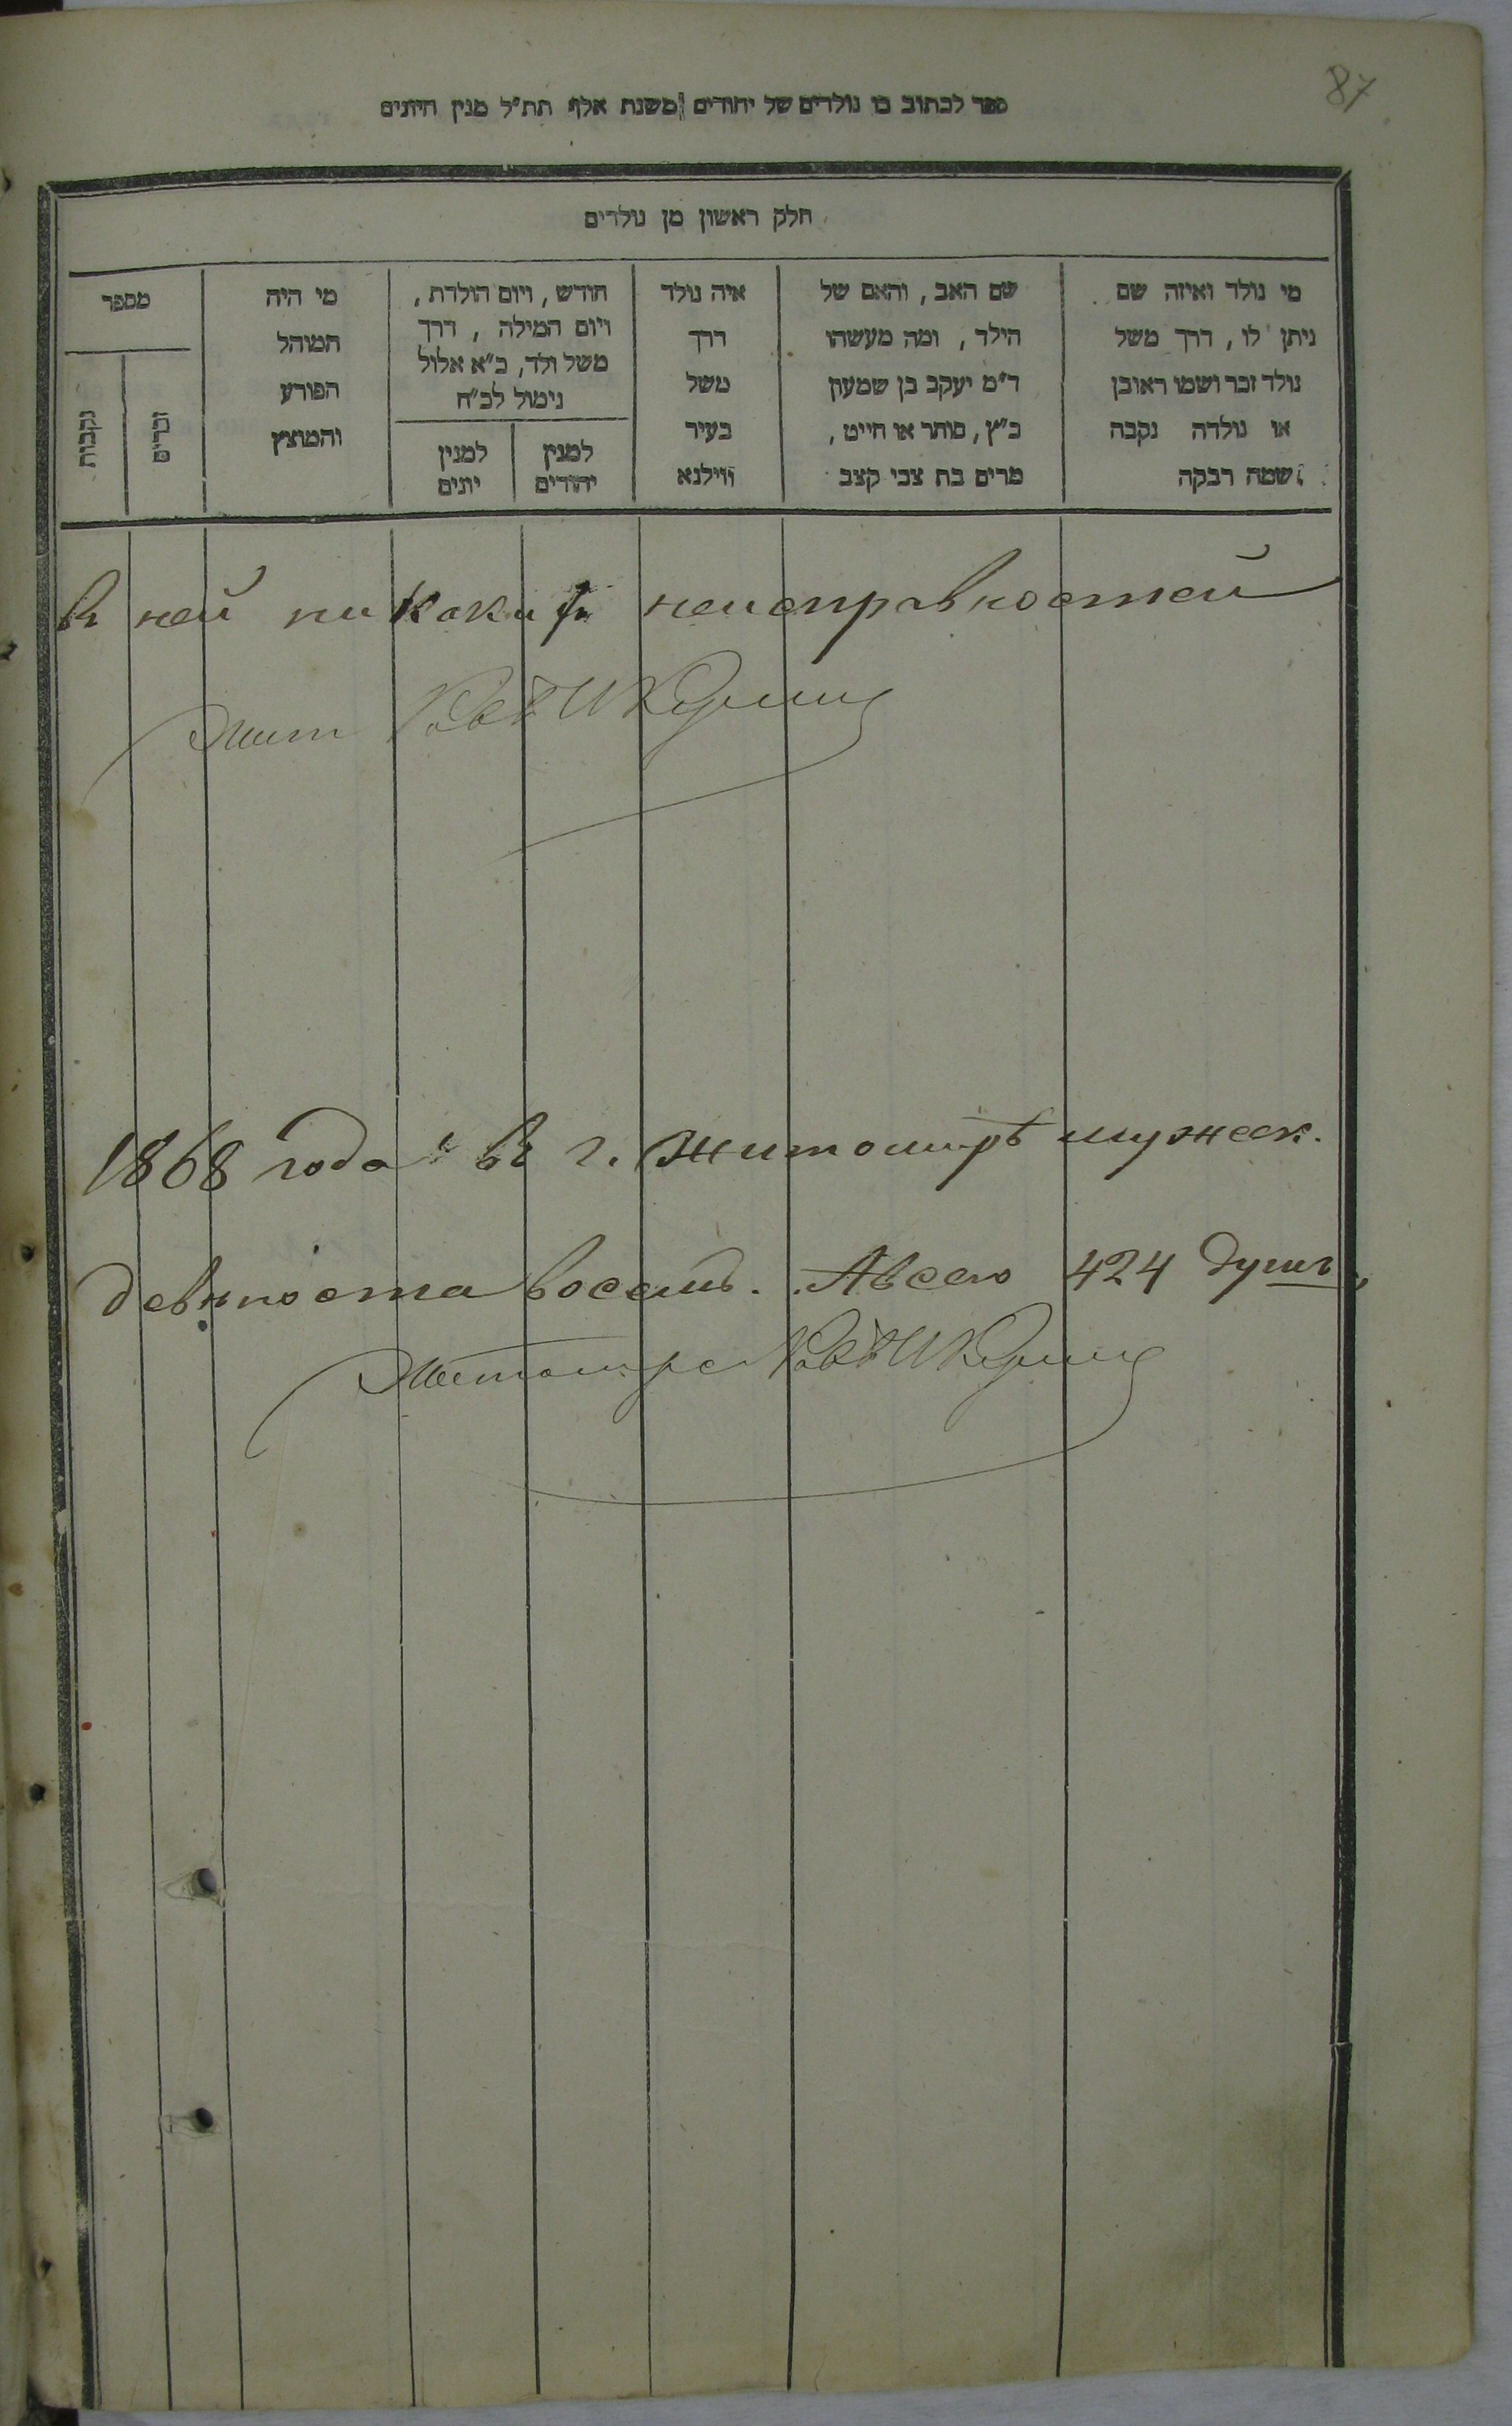 87
ספר לכתוב בו נולדים של יהודים משנת אלף תת״ל מנין היונים
חלק ראשון מן נולדים
מי נולד ואיזה שם
ניתן לו, דרך משל
נולד זכר ושמו ראובן
או נולדה נקבה
ושמה רבקה
שם האב, והאם של
הילד, ומה מעשהו
ד״מ יעקב בן שמעון
כ״ץ, סוחר או חייט,
מרים בת צבי קצב
איה נולד
דרך
משל
בעיר
ווילנא
חודש, ויום הולדת,
ויום המילה, דרך
משל ולד, כ״א אלול
נימול לכ״ח
למנין
יהודים
למנין
יונים
מי היה
המוהל
הפורע
והמוצץ
מספר
זכרים
נקבות
въ ней никакихъ неисправностей
Жит
1868 года въ г. Житомирѣ мужеск.
девяноста восемь. А всего 424 душъ,